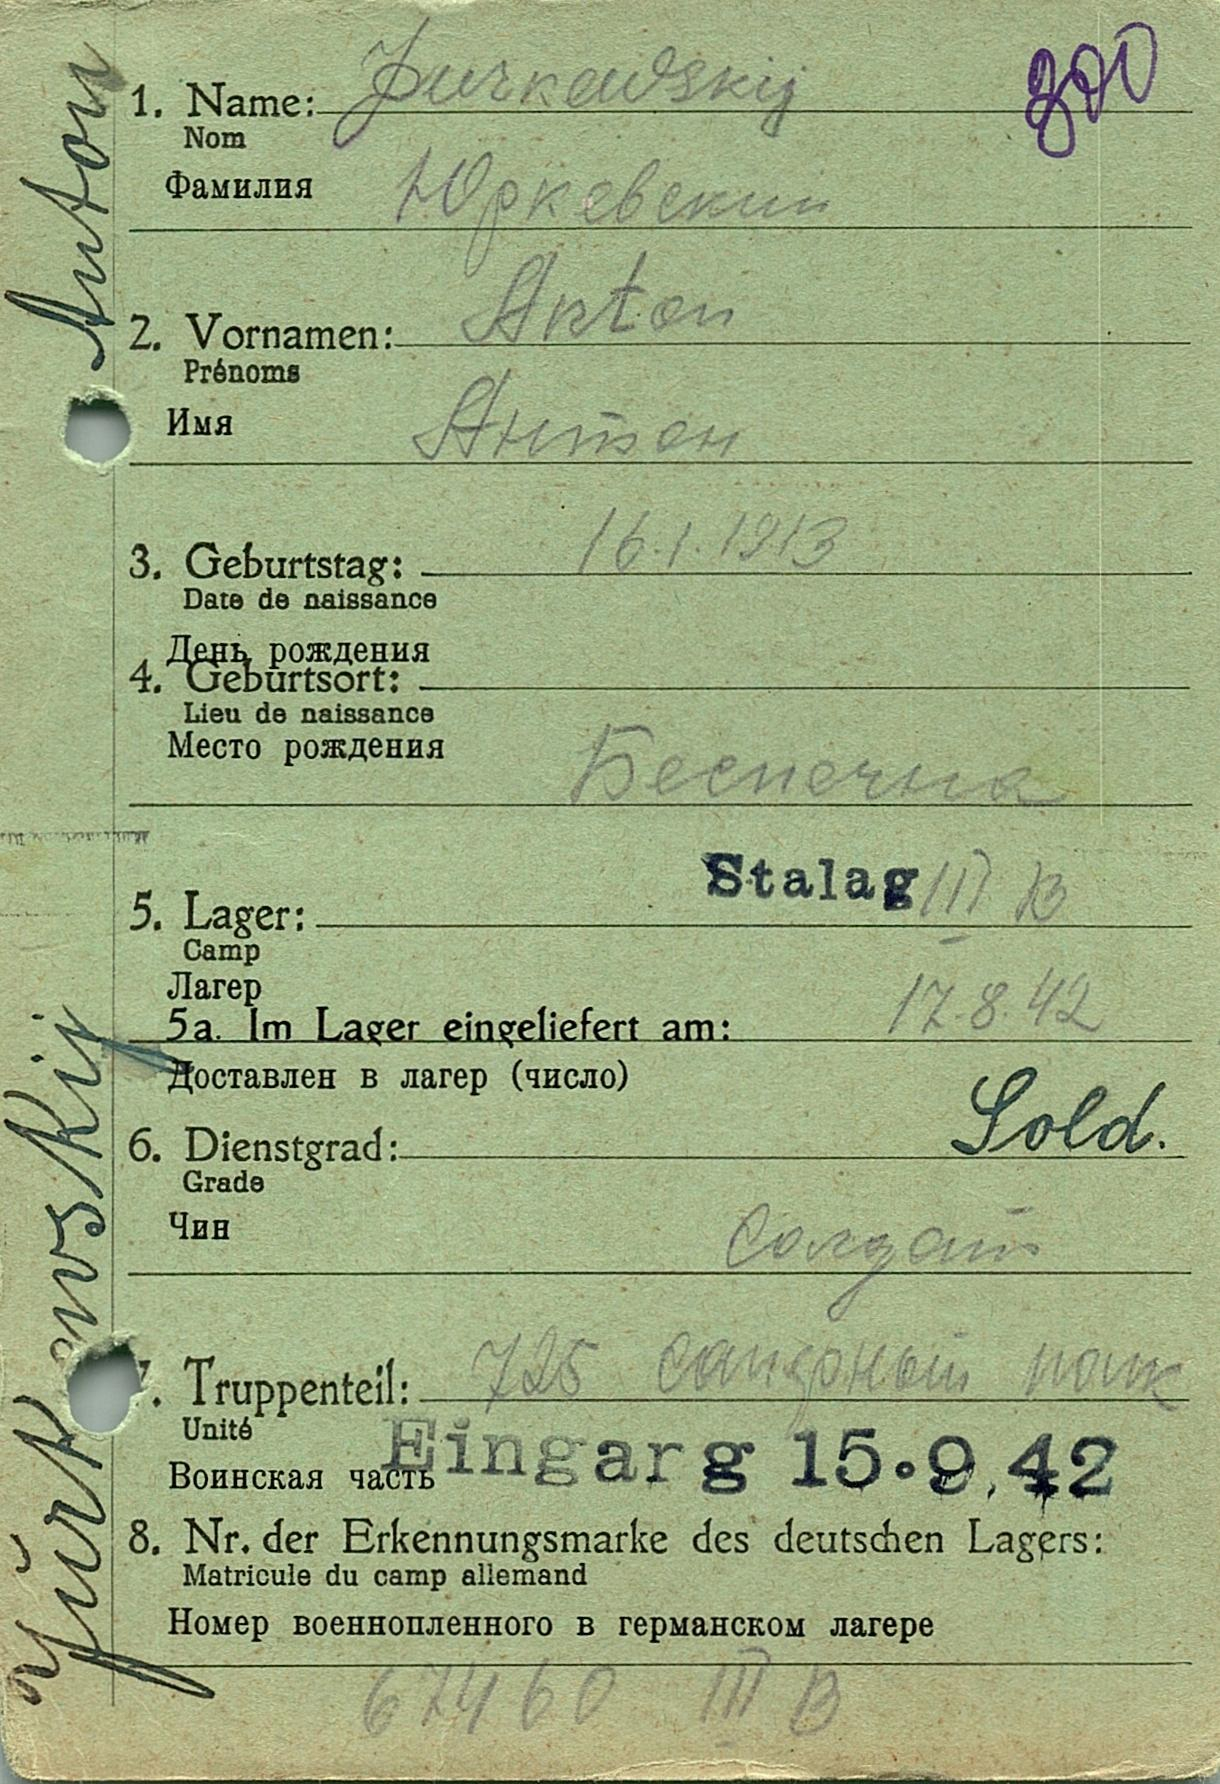 1. Name: Jurkewskij
Nom
Фамилия Юркевский
2. Vornamen: Anton
Prénoms
Имя Антон
3. Geburtstag: 16.1.1913
Date de naissance
День рождения
4. Geburtsort:
Lieu de naissance
Место рождения Беспечна
5. Lager: Stalag III B
Camp
Лагер
5a. Im Lager eingeliefert am: 17.8.42
Доставлен в лагер (число)
6. Dienstgrad: Sold.
Grade
Чин солдат
7. Truppenteil: 725 саперный полк
Unité
Воинская часть
Eingarg 15.9.42
8. Nr. der Erkennungsmarke des deutschen Lagers:
Matricule du camp allemand
Номер военнопленного в германском лагере
67460 III B
Jurkewskij Anton